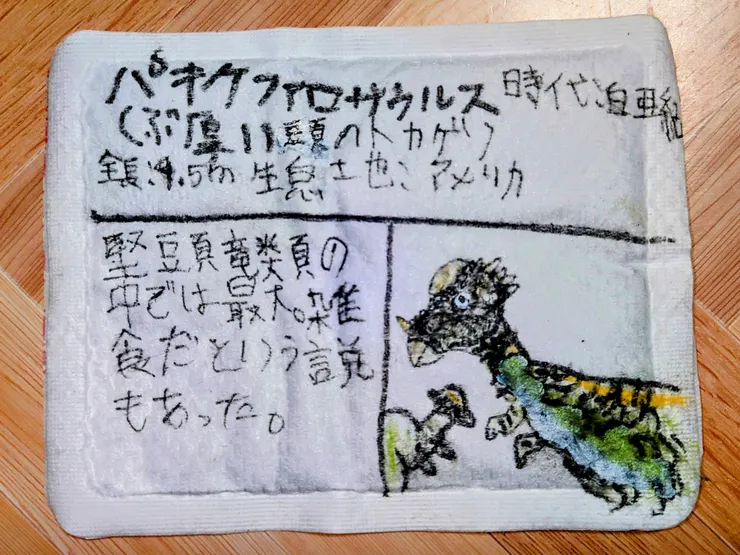 パキケファロサウルス 時代:白亜紀
(ぶ厚い頭のトカゲ)
全長:4.5m 生息地:アメリカ
堅頭竜類の
中では最大。雑
食だという説
もあった。